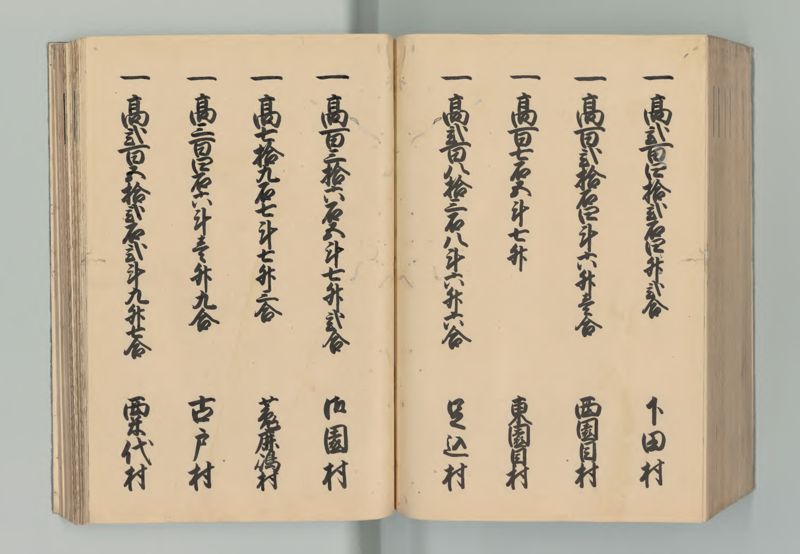 一高弐百四拾弐石四升弐合 下田村
一高百弐拾石四斗六升壱合 西園目村
一高百七石五斗七升 東園目村
一高弐百八拾三石八斗六升六合 足込村
一高百三拾六石五斗七升弐合 御園村
一高七拾九石七斗七升三合 嶋村
一高三百四石六斗壱升九合 古戸村
一高弐百五拾弐石弐斗九升七合 粟代村